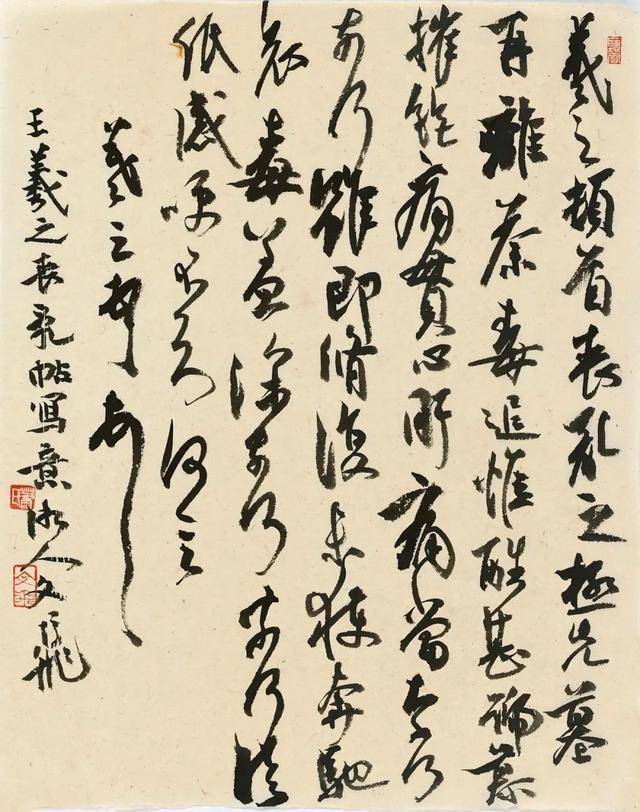 羲之頓首喪亂之極先墓
再離荼毒追惟酷甚號慕
摧絕痛貫心肝痛當奈何
奈何雖即脩復未獲奔馳
哀毒益深奈何奈何臨
紙感哽不知何言
羲之頓首
王羲之喪亂帖寫意湘人文飛